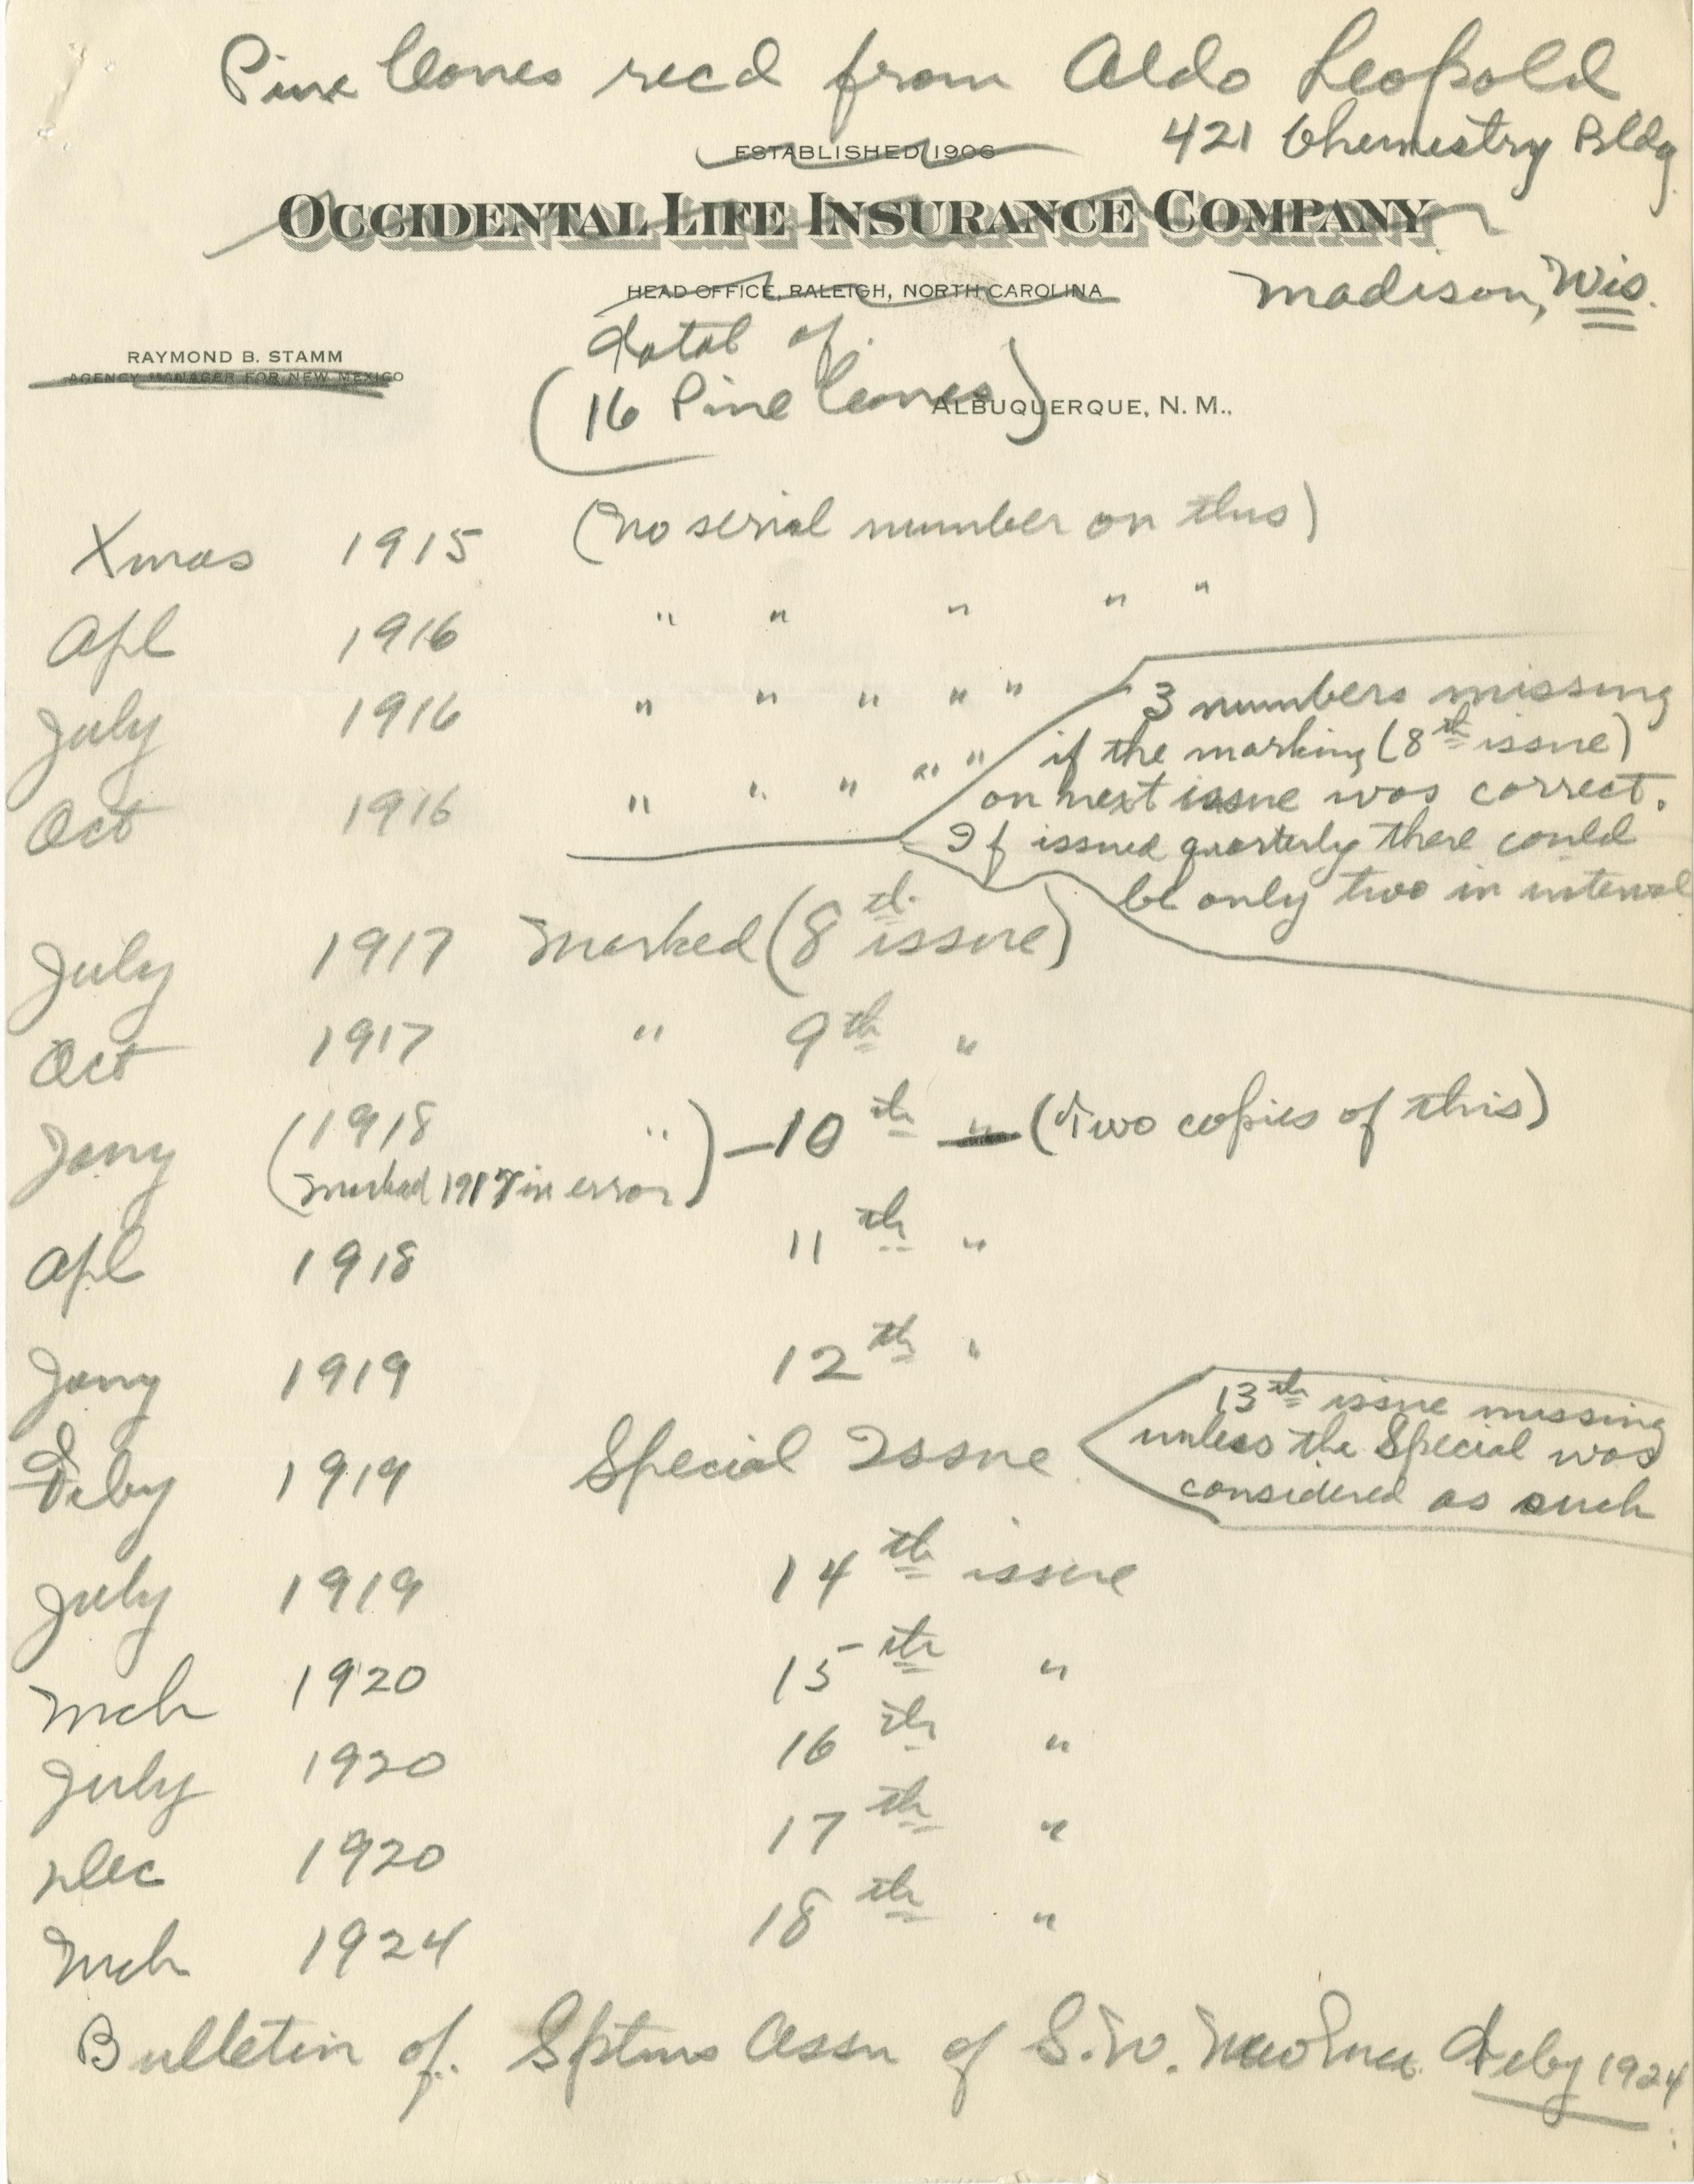 Pine Cones recd from Aldo Leopold
421 Chemistry Bldg
ESTABLISHED 1906
OCCIDENTAL LIFE INSURANCE COMPANY
HEAD OFFICE, RALEIGH, NORTH CAROLINA
Madison, Wis.
Total of
RAYMOND B. STAMM
AGENCY MANAGER FOR NEW MEXICO
(16 Pine Cones)
ALBUQUERQUE, N. M.,
Xmas 1915 (no serial number on this)
Apl 1916 " " " " "
July 1916 " " " " "
Oct 1916 " " " " "
3 numbers missing
if the marking (8th issue)
on next issue was correct.
If issued quarterly there could
be only two in interval
July 1917 Marked (8th issue)
Oct 1917 " 9th "
Jany (1918 ") - 10th " (Two copies of this)
(marked 1917 in error)
Apl 1918 11th "
Jany 1919 12th "
Feby 1919 Special Issue
13th issue missing
unless the Special was
considered as such
July 1919 14th issue
Mch 1920 15th "
July 1920 16th "
Dec 1920 17th "
Mch 1924 18th "
Bulletin of Sptms Assn of S.W. Feby 1924